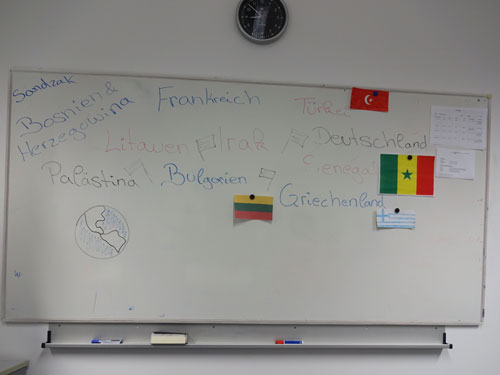 Sandzak
Bosnien &
Herzegowina
Frankreich
Türkei
Litauen
Irak
Deutschland
Cienégal
Palästina
Bulgarien
Griechenland